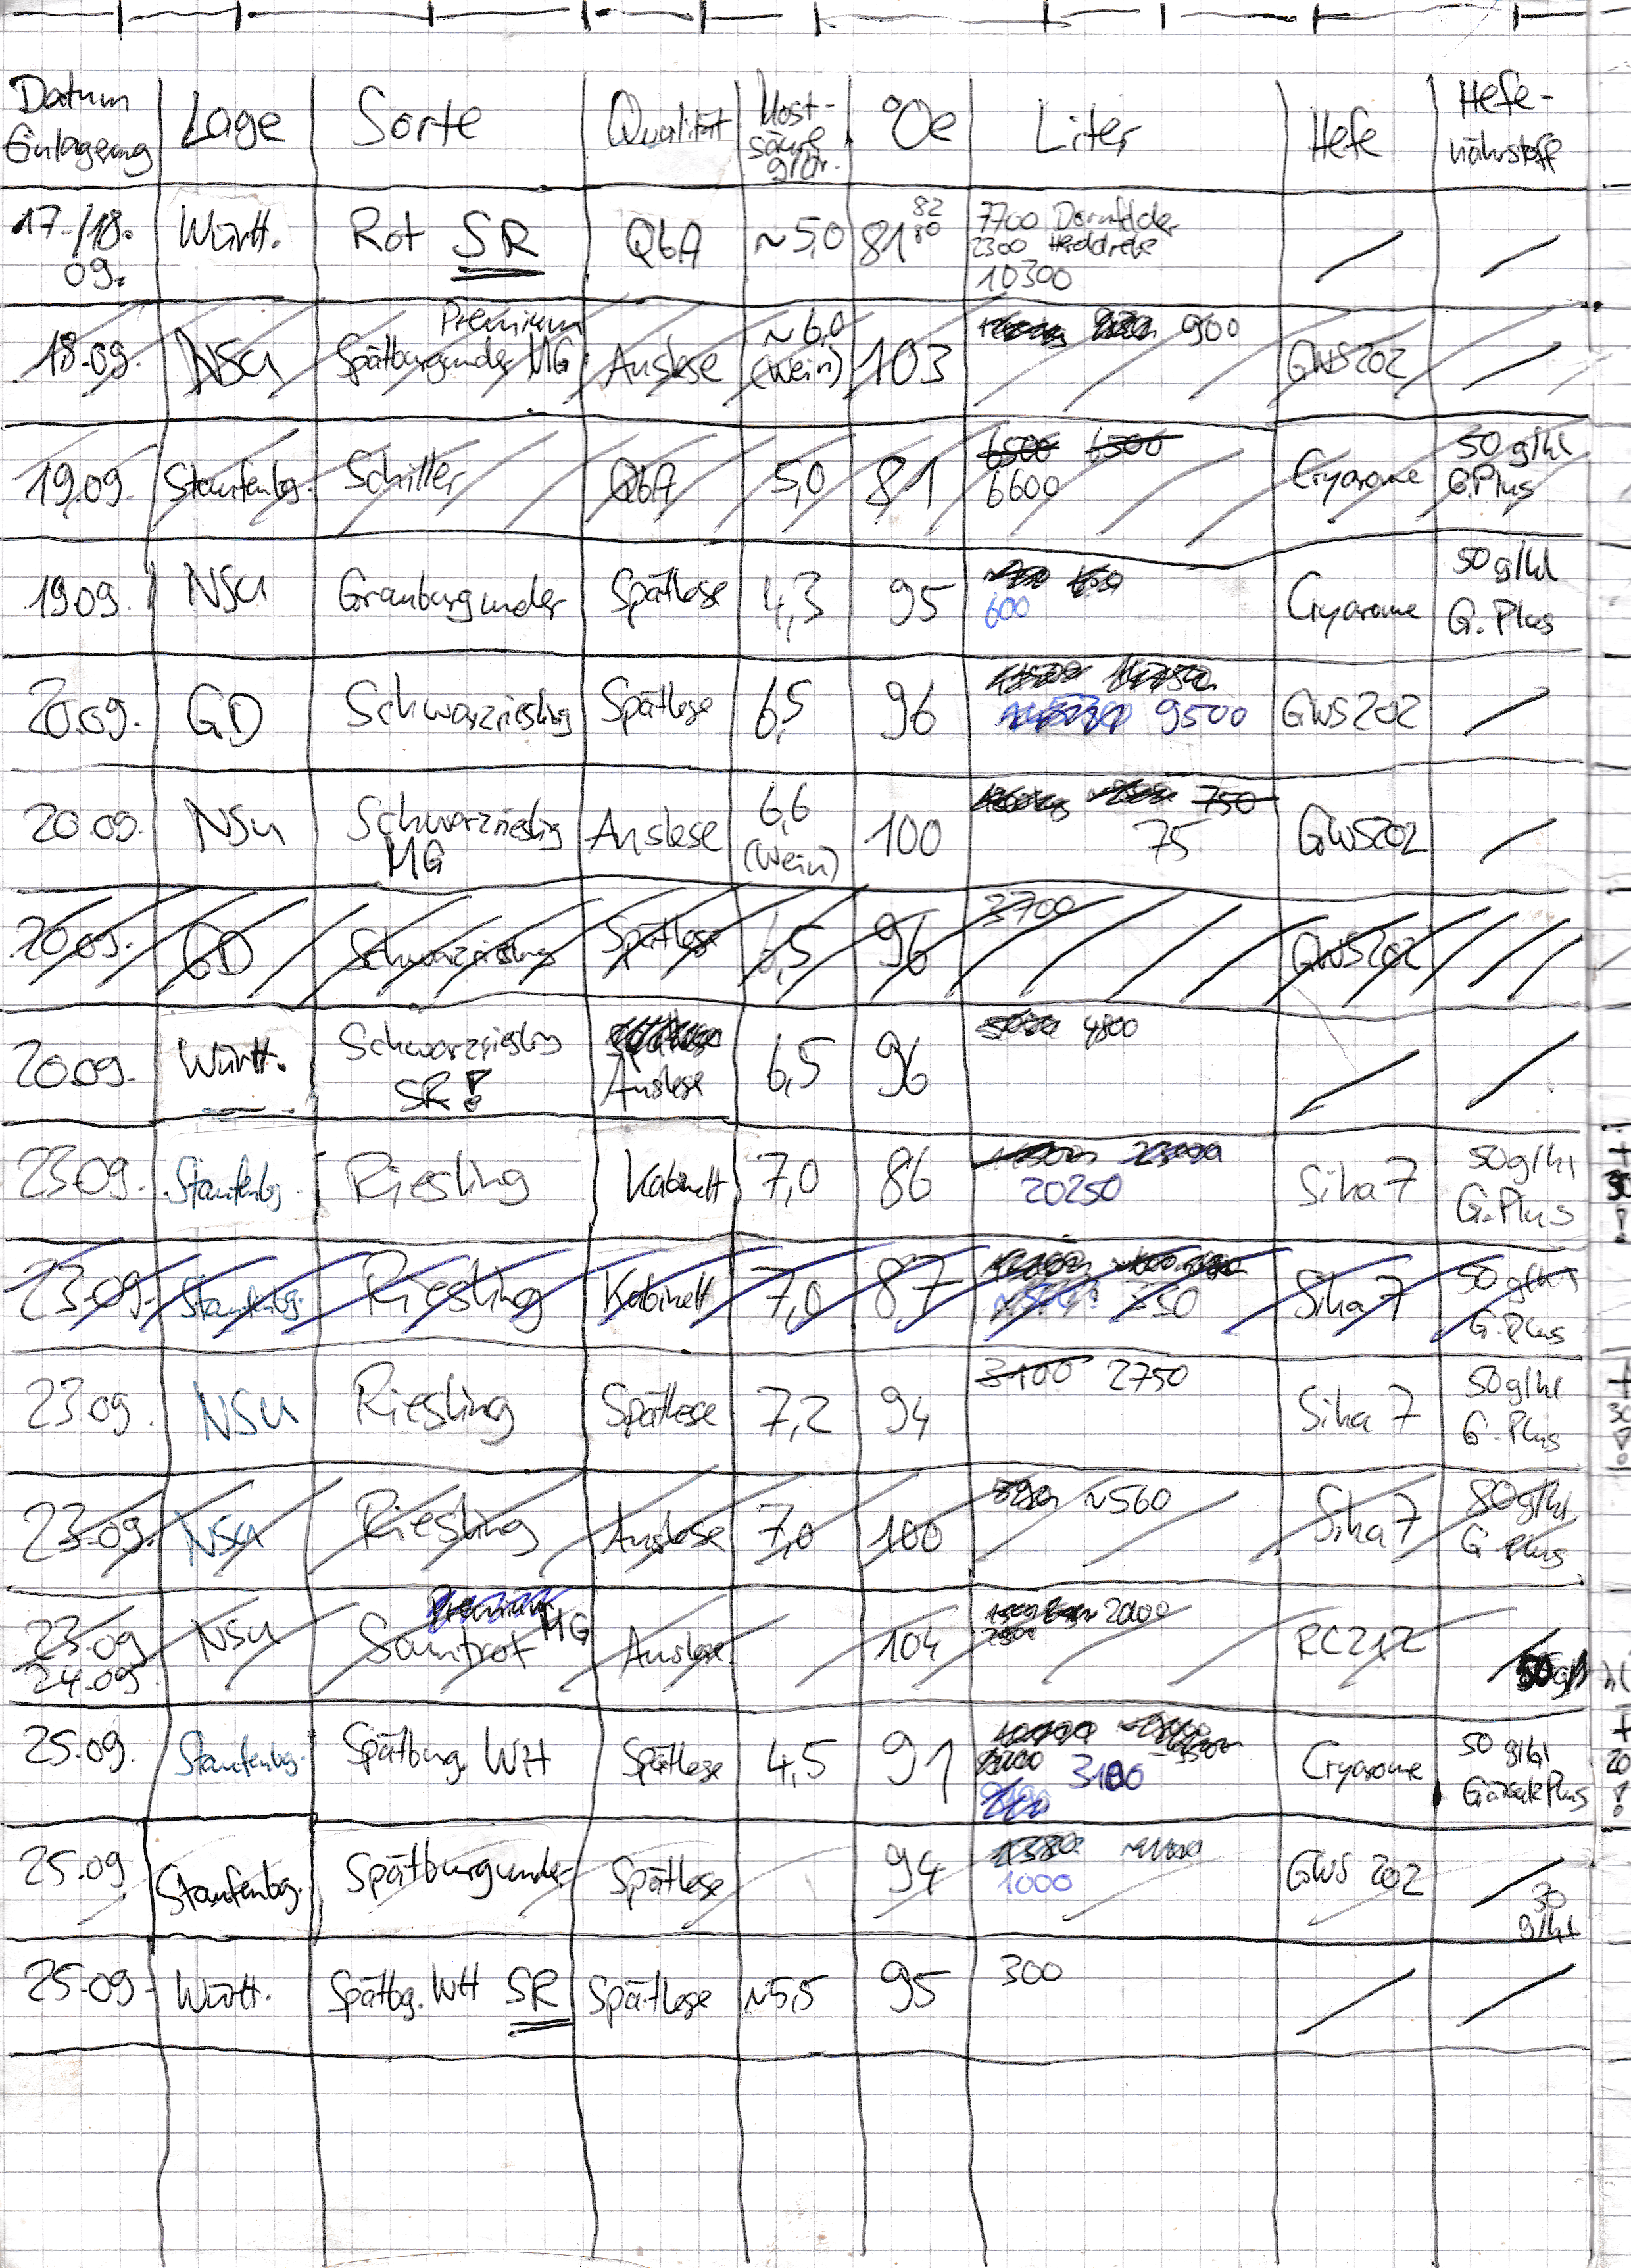 Datum Einlagerung Lage Sorte Qualität Most-säure g/Ltr. °Oe Liter Hefe Hefe-nährstoff
17./18. 09. Württ. Rot SR QbA ~5,0 81 82 80 7700 Dornfelder 2300 Heroldrebe 10300 / /
18.09. NSU Spätburgunder Premium MG Auslese ~6,0 (Wein) 103 900 GWS202 /
19.09. Staufenbg. Schiller QbA 5,0 81 6500 6500 6600 Cryarome 50 g/hl G.Plus
19.09. NSU Grauburgunder Spätlese 4,3 95 600 Cryarome 50 g/hl G. Plus
20.09. GD Schwarzriesling Spätlese 6,5 96 9500 GWS202 /
20.09. NSU Schwarzriesling MG Auslese 6,6 (Wein) 100 750 75 GWS202 /
20.09. GD Schwarzriesling Spätlese 6,5 96 3700 GWS202
20.09. Württ. Schwarzriesling SR! Auslese 6,5 96 4800 / /
23.09. Staufenbg. Riesling Kabinett 7,0 86 20250 Siha 7 50g/hl G.Plus
23.09. Staufenbg. Riesling Kabinett 7,0 87 350 Siha 7 50 g/hl G.Plus
23.09. NSU Riesling Spätlese 7,2 94 3100 2750 Siha 7 50g/hl G.Plus + 30
23.09. NSU Riesling Auslese 7,0 100 ~560 Siha 7 50g/hl G Plus
23.09 24.09 NSU Samtrot Premium MG Auslese 104 2000 RC212 /
25.09. Staufenbg. Spätburg. WH Spätlese 4,5 91 3100 Cryarome 50 g/hl Gärsalz Plus + 20 !
25.09 Staufenbg. Spätburgunder Spätlese 94 1000 GWS 202 / 30 g/hl
25.09. Württ. Spätbg. WH SR Spätlese ~5,5 95 300 / /